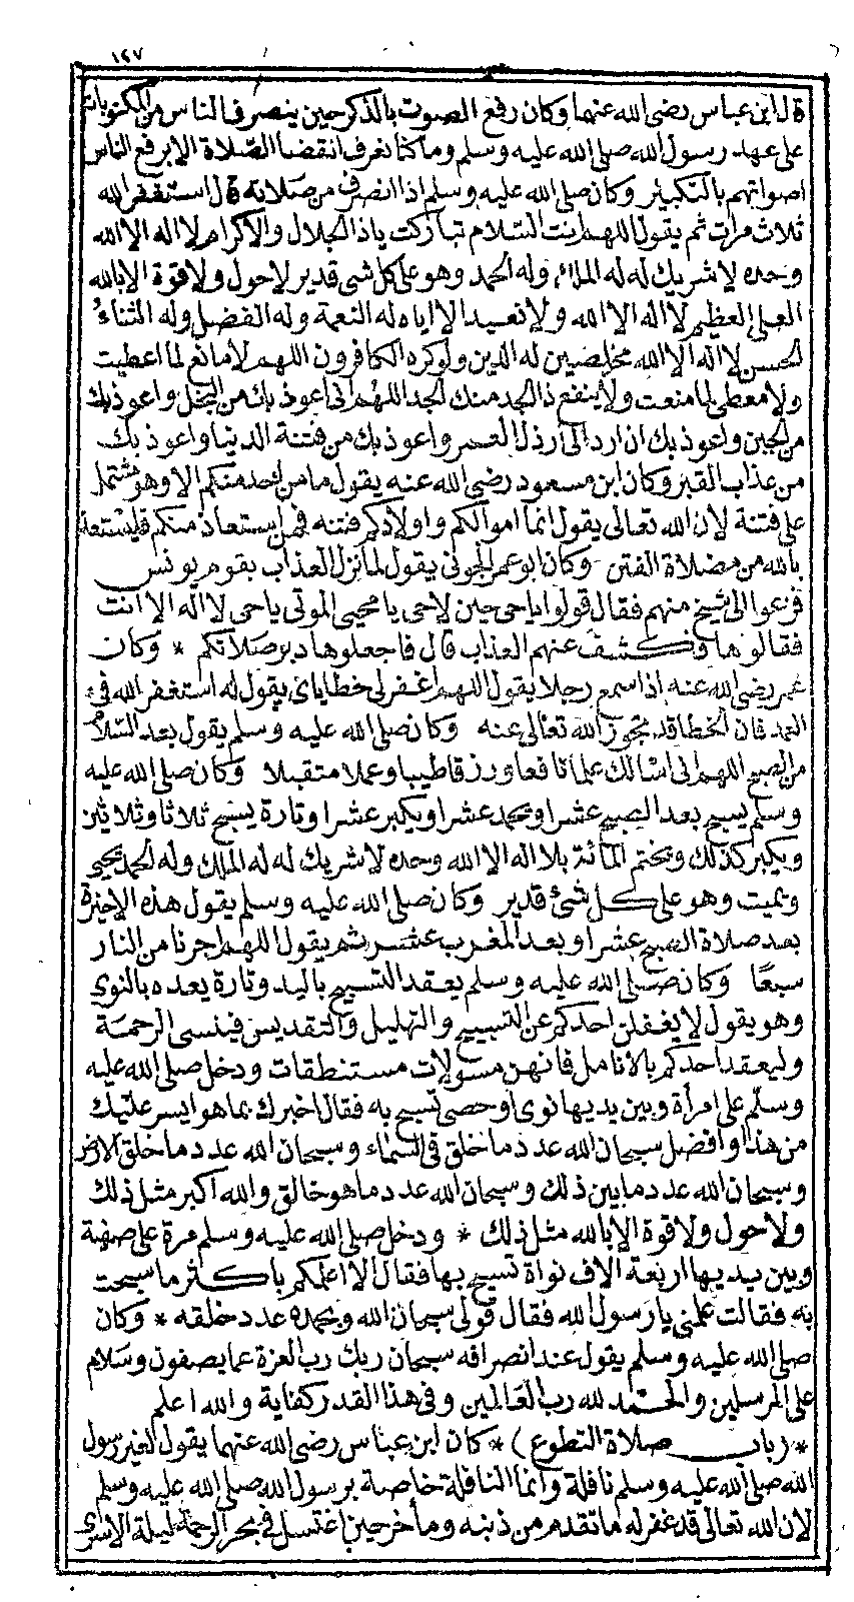 ١٢٧
قال ابن عباس رضى الله عنهما وكان رفع الصوت بالذكر حين ينصرف الناس من المكتوبات
على عهد رسول الله صلى الله عليه وسلم وما كنا نعرف انقضا الصلاة الا برفع الناس
اصواتهم بالتكبير وكان صلى الله عليه وسلم اذا انصرف من صلاته قال استغفر الله
ثلاث مرات ثم يقول اللهم انت السلام تباركت ياذا الجلال والاكرام لا اله الا الله
وحده لا شريك له له الملك وله الحمد وهو على كل شئ قدير لا حول ولا قوة الا بالله
العلى العظيم لا اله الا الله ولا نعبد الا اياه له النعمة وله الفضل وله الثناء
الحسن لا اله الا الله مخلصين له الدين ولو كره الكافرون اللهم لا مانع لما اعطيت
ولا معطى لما منعت ولا ينفع ذا الجد منك الجد اللهم انى اعوذ بك من البخل واعوذ بك
من الجبن واعوذ بك ان ارد الى أرذل العمر واعوذ بك من فتنة الدنيا واعوذ بك
من عذاب القبر وكان ابن مسعود رضى الله عنه يقول ما من احد منكم الا وهو مشتمل
على فتنة لان الله تعالى يقول انما اموالكم واولادكم فتنه فمن استعاذ منكم فليستعذ
بالله من مضلاة الفتن وكان ابو عمر الجونى يقول لما نزل العذاب بقوم يونس
فزعوا الى شيخ منهم فقال قولوا ياحى حين لا حى يا محيى الموتى ياحى لا اله الا انت
فقالوها فكشف عنهم العذاب قال فاجعلوها دبر صلاتكم * وكان
عمر رضى الله عنه اذا سمع رجلا يقول اللهم اغفر لى خطاياى يقول له استغفر الله فى
العمد فان الخطا قد تجوز الله تعالى عنه وكان صلى الله عليه وسلم يقول بعد السلام
من الصبح اللهم انى اسالك علما نافعا ورزقا طيبا وعملا متقبلا وكان صلى الله عليه
وسلم يسبح بعد الصبح عشرا ويحمد عشرا ويكبر عشرا وتارة يسبح ثلاثا وثلاثين
ويكبر كذلك ويختم المائة بلا اله الا الله وحده لا شريك له له الملك وله الحمد يحيى
ويميت وهو على كل شئ قدير وكان صلى الله عليه وسلم يقول هذه الاخيرة
بعد صلاة الصبح عشرا وبعد المغرب عشر ثم يقول اللهم اجرنا من النار
سبعًا وكان صلى الله عليه وسلم يعقد التسبيح باليد وتارة يعده بالنوى
وهو يقول لا يغفلن احدكم عن التسبيح والتهليل والتقديس فينسى الرحمة
وليعقد احدكم بالانامل فانهن مسؤلات مستنطقات ودخل صلى الله عليه
وسلم على امرأة وبين يديها نوى او حصى تسبح به فقال اخبرك بما هو ايسر عليك
من هذا وافضل سبحان الله عدد ما خلق فى السماء وسبحان الله عدد ما خلق الارض
وسبحان الله عدد ما بين ذلك وسبحان الله عدد ما هو خالق والله اكبر مثل ذلك
ولا حول ولا قوة الا بالله مثل ذلك * ودخل صلى الله عليه وسلم مرة على صفية
وبين يديها اربعة الاف نواة تسبح بها فقال الا اعلمكم باكثر ما سبحت
به فقالت علمنى يا رسول الله فقال قولى سبحان الله وبحمده عدد خلقه * وكان
صلى الله عليه وسلم يقول عند انصرافه سبحان ربك رب العزة عما يصفون وسلام
على المرسلين والحمد لله رب العالمين وفى هذا القدر كفاية والله اعلم
* (باب صلاة التطوع) * كان ابن عباس رضى الله عنهما يقول لغير رسول
الله صلى الله عليه وسلم نافلة وانما النافلة خاصة برسول الله صلى الله عليه وسلم
لان الله تعالى قد غفر له ما تقدم من ذنبه وما أخر حين اغتسل فى بحر الرحمة ليلة الاسرى